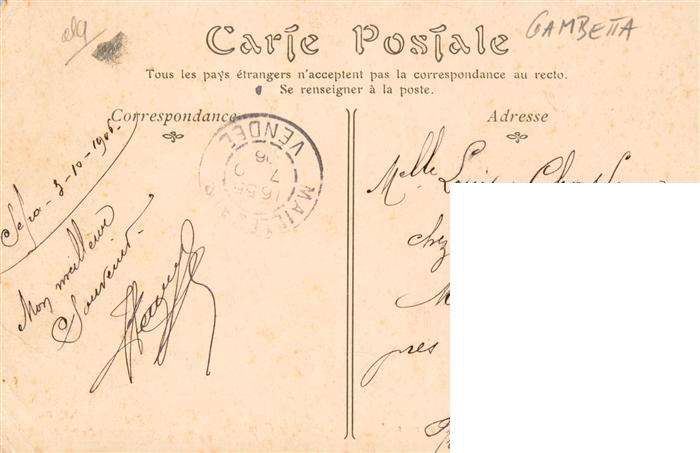 GAMBETTA
Carte Postale
Tous les pays étrangers n'acceptent pas la correspondance au recto.
Se renseigner à la poste.
Correspondance
Adresse
VENDÉE
3-10-1906-
Mon meilleur
Souvenir
Melle
chez
M
près